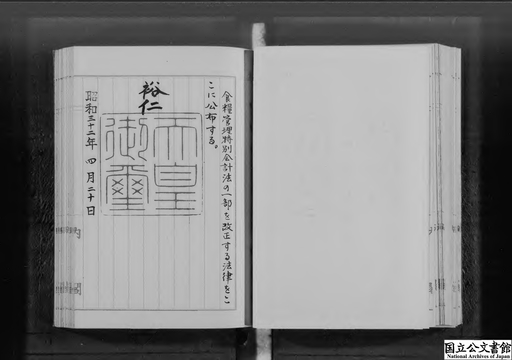 食糧管理特別会計法の一部を改正する法律をこ
こに公布する。
裕仁
天皇
御璽
昭和三十二年四月二十日
国立公文書館
National Archives of Japan